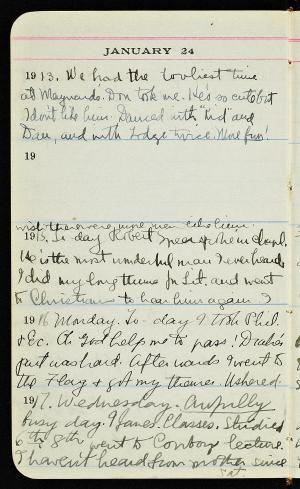 JANUARY 24
1913. We had the lovliest time
at Maynards. Don took me. He's so cute but
I don't like him. Danced with "Kid" and
Dan, and with Lodge twice. More fun!
19
wish there were more men like him.
1915. To-day Robert Speer spoke in chapel.
He is the most wonderful man I ever heard.
I did my long theme for Lit. and went
to Christians to hear him again. I
1916 Monday. To-day I took Phil.
& Ec. Oh God help me to pass! Drake's
just was hard. Afterwards I went to
the Flag & got my themes. Ushered.
1917. Wednesday. Awfully
busy day. 9 James. Classes. Studied
6th 8th went to Conboy lecture.
I haven't heard from mother since
Sat.